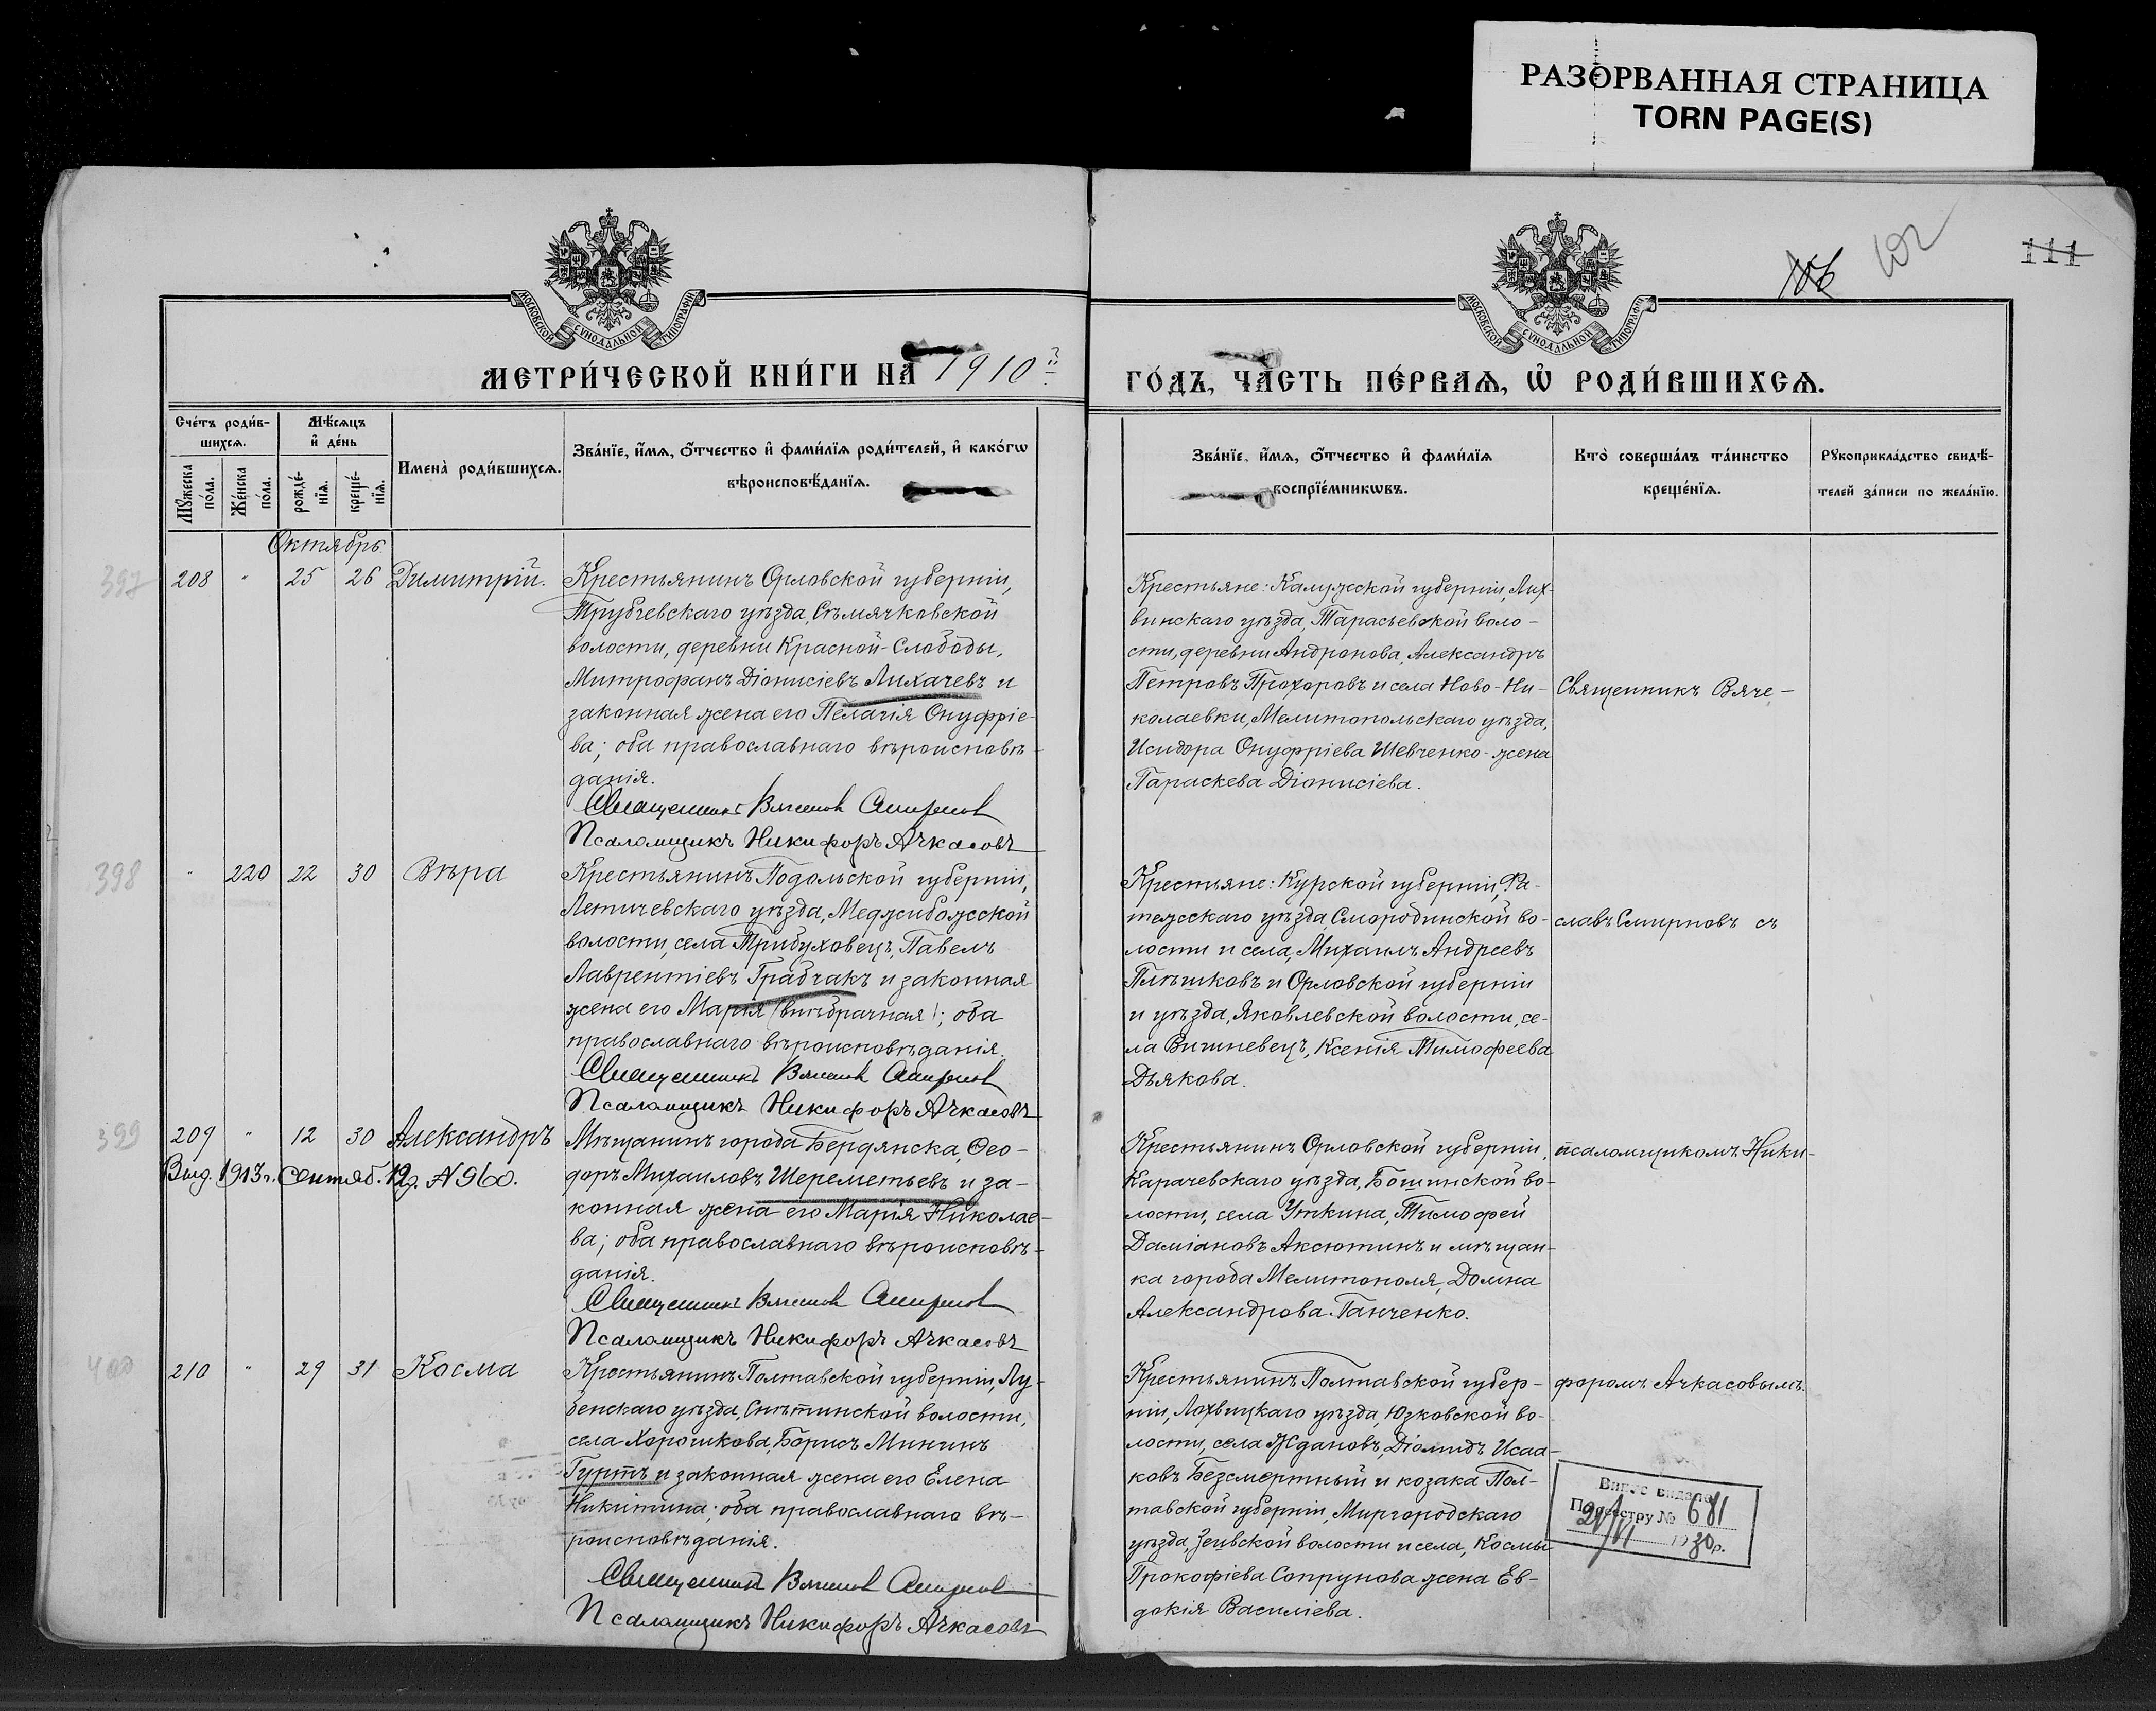 РАЗОРВАННАЯ СТРАНИЦА
TORN PAGE(S)
106
102
111
МОСКОВСКОЙ СУНОДАЛЬНОЙ ТИПОГРАФІИ
МОСКОВСКОЙ СУНОДАЛЬНОЙ ТИПОГРАФІИ
МЕТРИ́ЧЕСКОЙ КНИ́ГИ НА 1910 й
ГО́ДЪ, ЧА́СТЬ ПЕ́РВАѦ, Ѡ РОДИ́ВШИХСѦ.
Сче́тъ роди́в-
шихсѧ.
Мꙋ́жеска по́ла.
Же́нска по́ла.
Мѣ́сѧцъ
и де́нь
рожде́-
нїѧ.
креще́-
нїѧ.
Имена̀ роди́вшихсѧ.
Зва́нїе, и́мѧ, ѻ́тчество и фами́лїѧ роди́телей, и како́гѡ
вѣроисповѣ́данїѧ.
Зва́нїе, и́мѧ, ѻ́тчество и фами́лїѧ
воспрїе́мникѡвъ.
Кто̀ соверша́лъ та́инство
креще́нїѧ.
Рꙋкоприкла́дство свидѣ́-
телей за́писи по жела́нїю.
Октябрь.
397
208 " 25 26 Димитрій.
Крестьянинъ Орловской губерніи,
Трубчевскаго уѣзда, Сѣмячковской
волости, деревни Красной-Слободы,
Митрофанъ Діонисіевъ Лихачевъ и
законная жена его Пелагія Онуфріе-
ва; оба православнаго вѣроисповѣ-
данія.
Священникъ Вячеславъ Смирновъ
Псаломщикъ Никифоръ Ачкасовъ
Крестьяне: Калужской губерніи, Лих-
винскаго уѣзда, Тарасьевской воло-
сти, деревни Андронова, Александръ
Петровъ Прохоровъ и села Ново-Ни-
колаевки, Мелитопольскаго уѣзда,
Исидора Онуфріева Шевченко-жена
Параскева Діонисіева.
Священникъ Вяче-
398
" 220 22 30 Вѣра
Крестьянинъ Подольской губерніи,
Летичевскаго уѣзда, Меджибожской
волости, села Трибуховецъ, Павелъ
Лаврентіевъ Грабчакъ и законная
жена его Марія (внѣбрачная); оба
православнаго вѣроисповѣданія.
Священникъ Вячеславъ Смирновъ
Псаломщикъ Никифоръ Ачкасовъ
Крестьяне: Курской губерніи, Фа-
тежскаго уѣзда, Смородинской во-
лости и села, Михаилъ Андреевъ
Плѣшковъ и Орловской губерніи
и уѣзда, Яковлевской волости, се-
ла Вишневецъ, Ксенія Тимофеева
Дьякова.
славъ Смирновъ съ
399
209 " 12 30 Александръ
Выд. 1913 г. Сентяб. 12 д. №960.
Мѣщанинъ города Бердянска, Ѳео-
доръ Михаиловъ Шереметьевъ и за-
конная жена его Марія Николае-
ва; оба православнаго вѣроисповѣ-
данія.
Священникъ Вячеславъ Смирновъ
Псаломщикъ Никифоръ Ачкасовъ
Крестьянинъ Орловской губерніи,
Карачевскаго уѣзда, Бошинской во-
лости, села Уткина, Тимофей
Даміановъ Аксютинъ и мѣщан-
ка города Мелитополя, Домна
Александрова Ганченко.
псаломщикомъ Ники-
400
210 " 29 31 Косма
Крестьянинъ Полтавской губерніи, Лу-
бенскаго уѣзда, Снѣтинской волости,
села Хорошкова, Борисъ Мининъ
Гуртъ и законная жена его Елена
Никитина; оба православнаго вѣ-
роисповѣданія.
Священникъ Вячеславъ Смирновъ
Псаломщикъ Никифоръ Ачкасовъ
Крестьянинъ Полтавской губер-
ніи, Лохвицкаго уѣзда, Юзковской во-
лости, села Ждановъ, Діомидъ Исаа-
ковъ Безсмертный и козака Пол-
тавской губерніи, Миргородскаго
уѣзда, Зецвской волости и села, Космы
Прокофіева Сопрунова жена Ев-
докія Василіева.
форомъ Ачкасовымъ.
Витяг видано
По реєстру № 681
1930р.